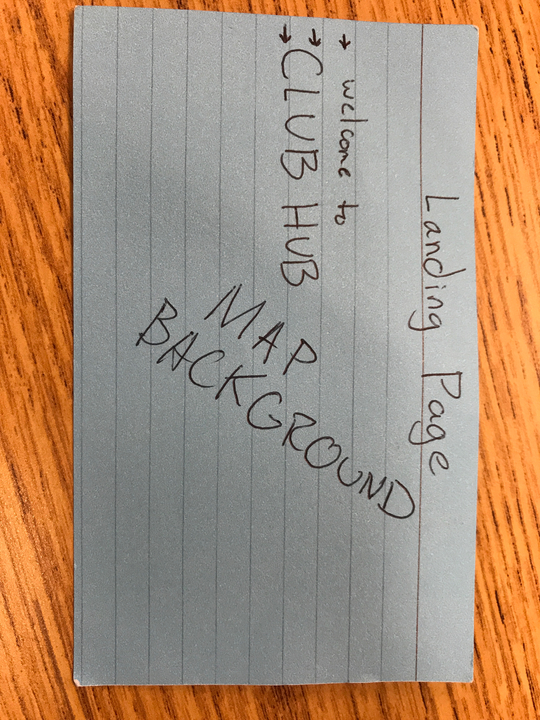 Landing Page
→ welcome to
→
→ CLUB HUB
MAP
BACKGROUND